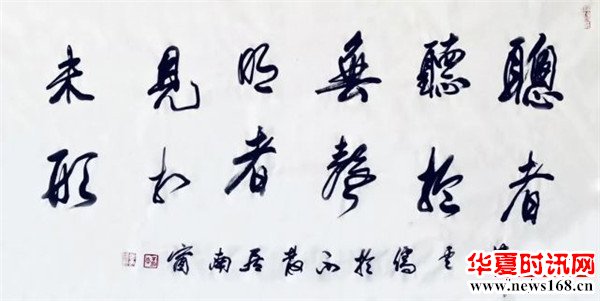 聰者
聽於
無聲
明者
見於
未形
云儒於不散居南窗
华夏时讯网
www.news168.cn